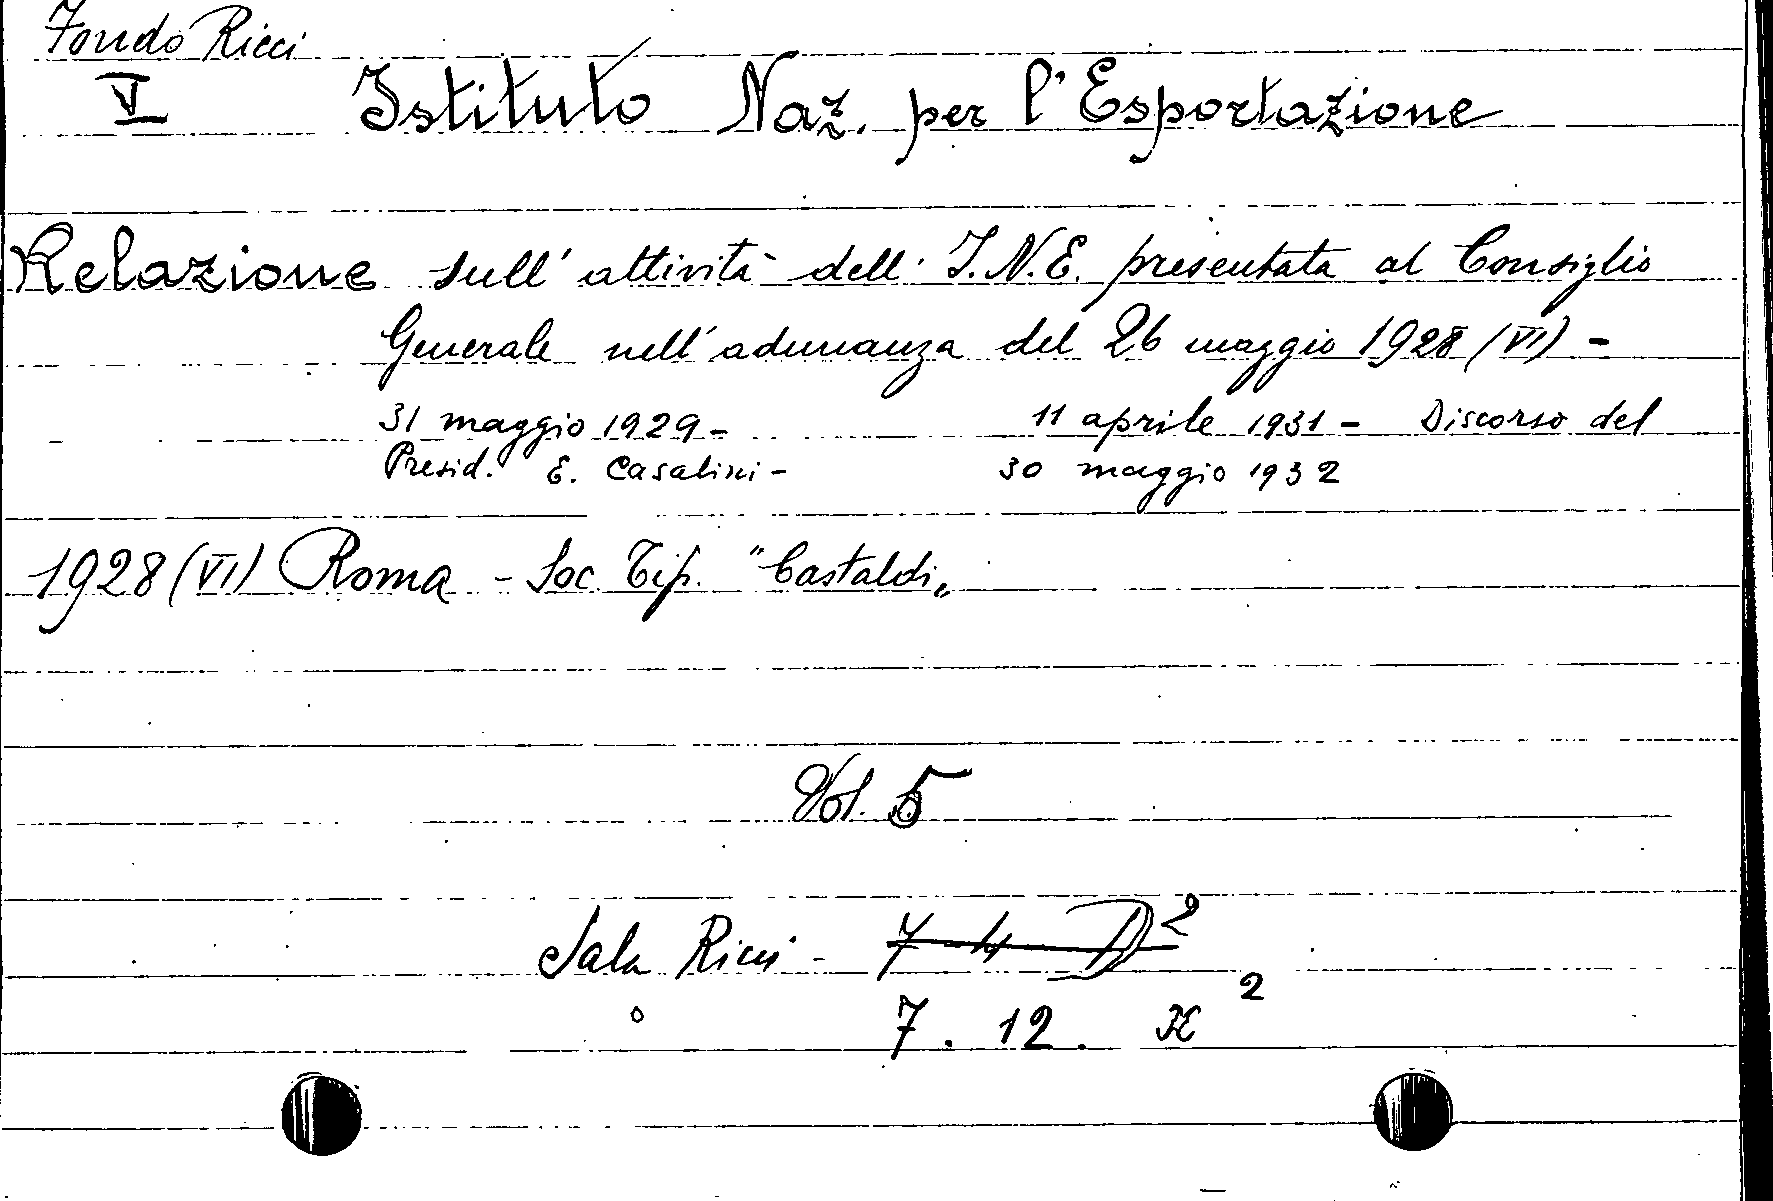 Fondo Ricci
V Istituto Naz. per l'Esportazione
Relazione sull'attività dell'I.N.E. presentata al Consiglio
Generale nell'adunanza del 26 maggio 1928 (VI) -
31 maggio 1929 - 11 aprile 1931 - Discorso del
Presid. E. Casalini - 30 maggio 1932
1928 (VI) Roma - Soc. Tip. "Castaldi"
Vol. 5
Sala Ricci - 7 4 D 2
7. 12. X 2